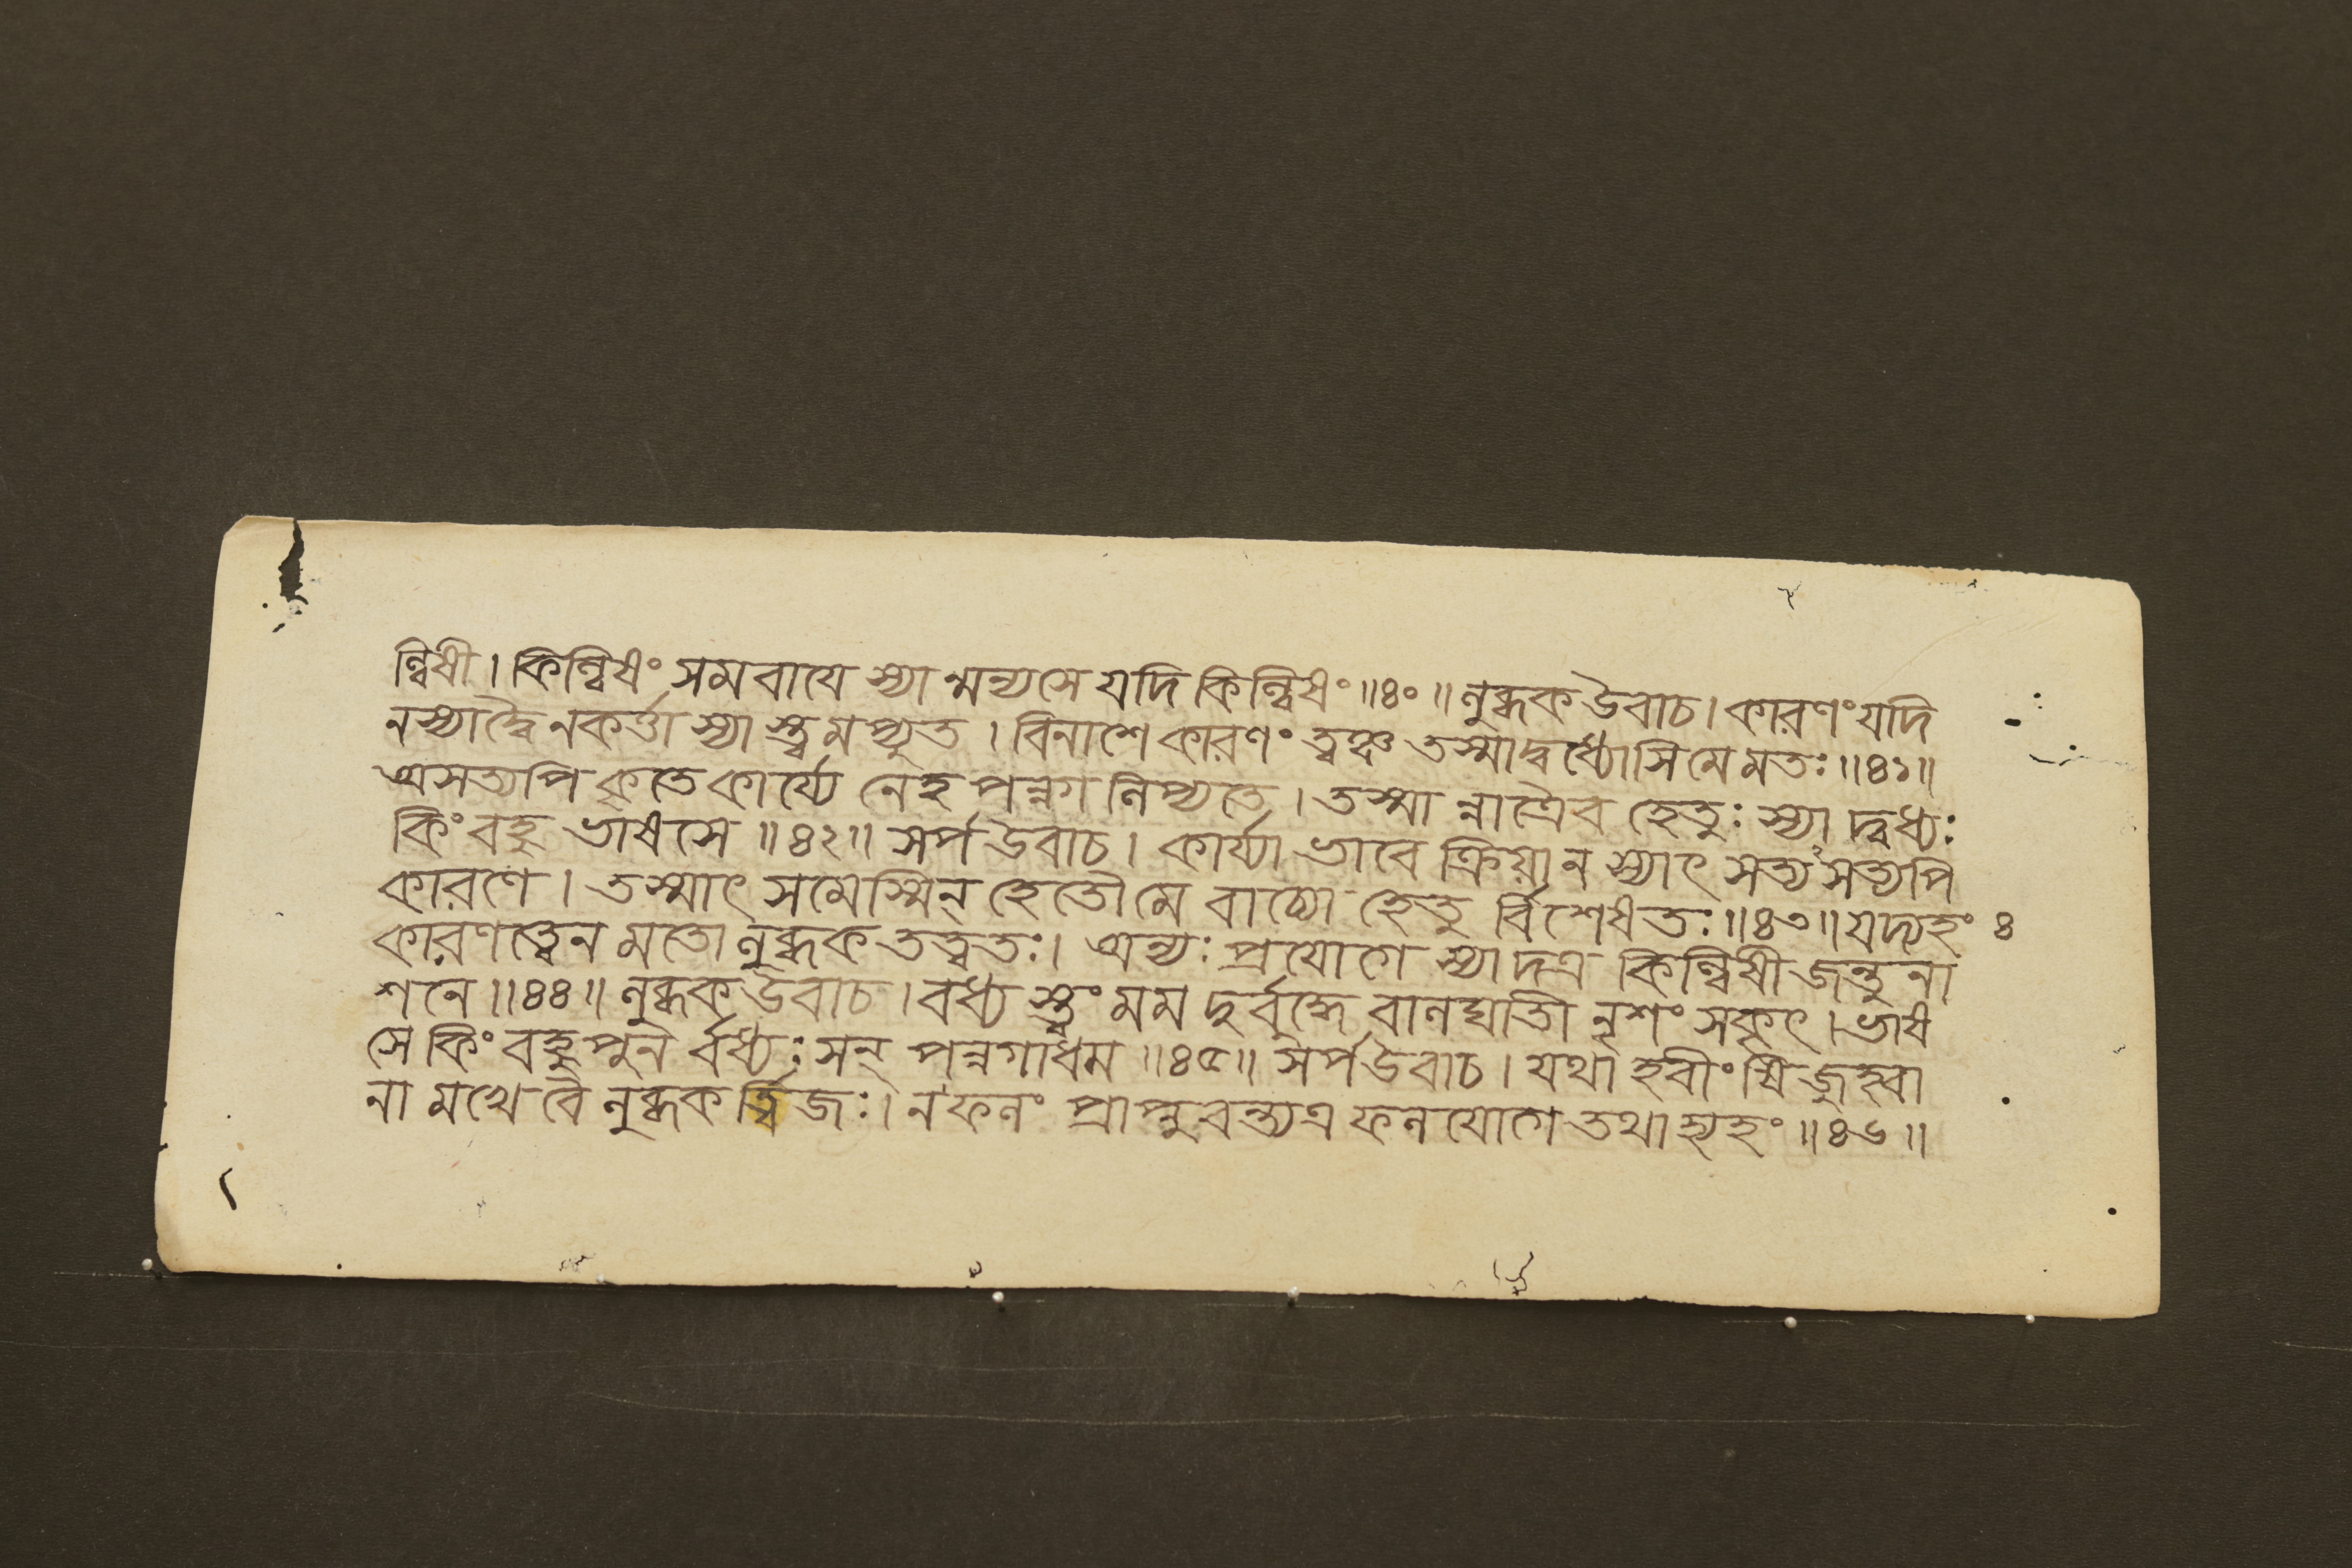 ল্বিষী। কিল্বিষং সমবাযে স্যা ন্মন্যসে যদি কিল্বিষং॥৪০॥ লুব্ধক উবাচ। কারণং যদি
ন স্যাদ্বৈ নকর্ত্তা স্যা স্ত্বমপ্যুত। বিনাশে কারণং ত্বঞ্চ তস্মাদ্বধ্যোসি মে মতঃ॥৪১॥
অসত্যপি কৃতে কার্য্যে নেহ পন্নগ লিপ্যতে। তস্মা ন্নাত্রৈব হেতুঃ স্যা দ্বধ্যঃ
কিং বহু ভাষসে॥৪২॥ সর্প উবাচ। কার্য্যা ভাবে ক্রিয়া ন স্যাৎ সত্য সত্যপি
কারণে। তস্মাৎ সমেস্মিন্ হেতৌ মে বাচ্যো হেতু র্বিশেষতঃ॥৪৩॥ যদ্যহং ৪
কারণত্বেন মতো লুব্ধক তত্ত্বতঃ। অন্যঃ প্রযোগে স্যা দত্র কিল্বিষী জন্তুনা
শনে॥৪৪॥ লুব্ধক উবাচ। বধ্য স্ত্বং মম দুর্বুদ্ধে বালঘাতী নৃশং সকৃৎ। ভাষ
সে কিং বহু পুন র্বধ্যঃ সন্ পন্নগাধম॥৪৫॥ সর্প উবাচ। যথা হবীং ষি জুহ্বা
না মখে বৈ লুব্ধক র্ত্বিজঃ। ন ফলং প্রাপ্নুবন্ত্যত্র ফলযোগে তথা হ্যহং॥৪৬॥